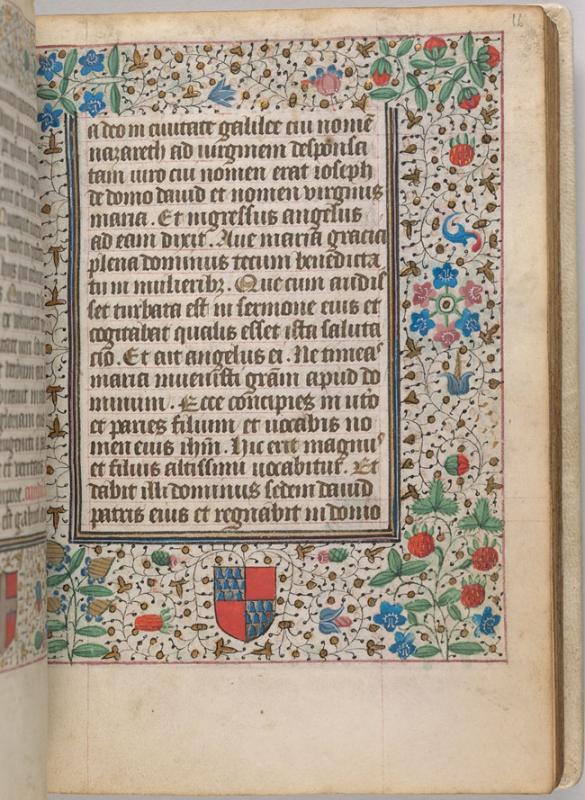 16
a deo in ciuitate galilee cui nomē
nazareth ad uirginem desponsa
tam uiro cui nomen erat ioseph
de domo dauid et nomen virginis
maria. Et ingressus angelus
ad eam dixit. Aue maria gracia
plena dominus tecum benedicta
tu in mulieribꝫ. Que cum audis
set turbata est in sermone eius et
cogitabat qualis esset ista saluta
cio. Et ait angelus ei. Ne timeas
maria inuenisti grām apud do
minum. Ecce concipies in uto
et paries filium et uocabis no
men eius ihm̄. Hic erit magnus
et filius altissimi uocabitur. Et
dabit illi dominus sedem dauid
patris eius et regnabit in domo